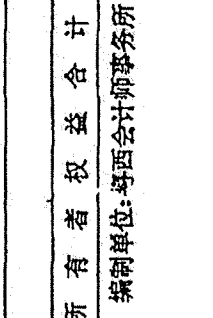 所有者权益合计
编制单位:粤西会计师事务所